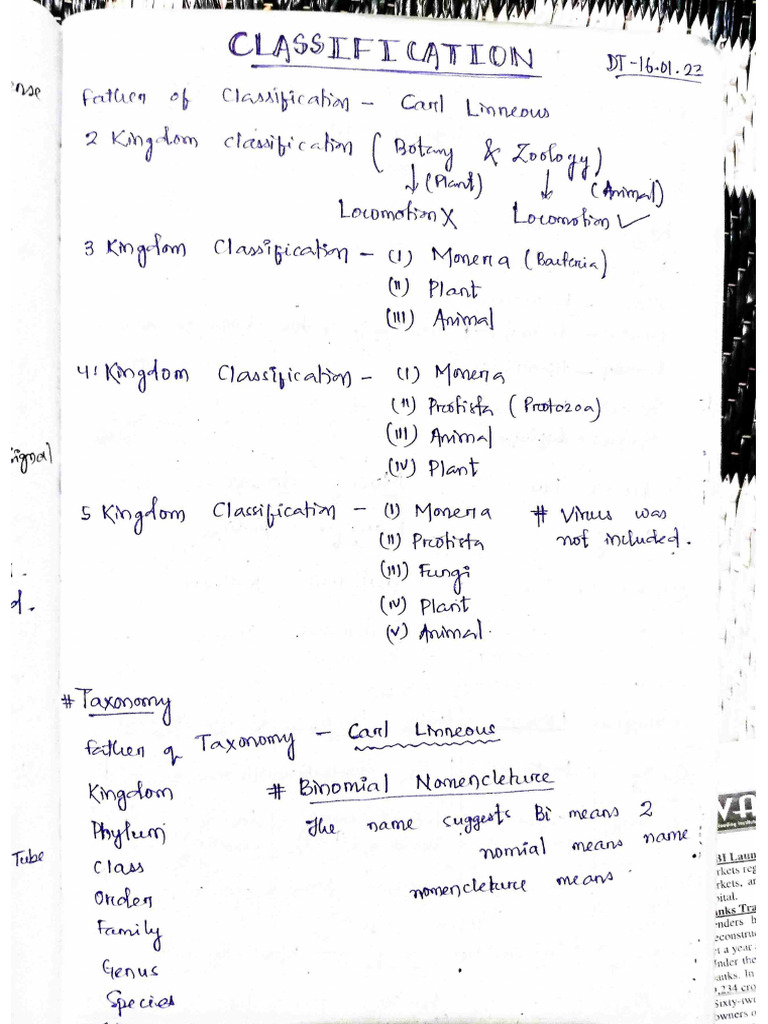 CLASSIFICATION
DT-16.01.22
Father of Classification - Carl Linneous
2 Kingdom classification ( Botany & Zoology)
↓ (Plant) ↓ (Animal)
Locomotion X Locomotion ✓
3 Kingdom Classification - (I) Monera (Bacteria)
(II) Plant
(III) Animal
4! Kingdom Classification - (I) Monera
(II) Protista (Protozoa)
(III) Animal
(IV) Plant
5 Kingdom Classification - (I) Monera # Virus was
(II) Protista not included.
(III) Fungi
(IV) Plant
(V) Animal.
# Taxonomy
Father of Taxonomy - Carl Linneous
Kingdom # Binomial Nomencleture
Phylum The name suggests Bi means 2
Class nomial means name
Order nomencleture means
Family
Genus
Species
Tube
VA
BI Laun
rkets reg
rkets, a
pital.
anks Tra
enders b
econstru
t a year
Under the
anks. In
,234 cro
Sixty-two
owners o